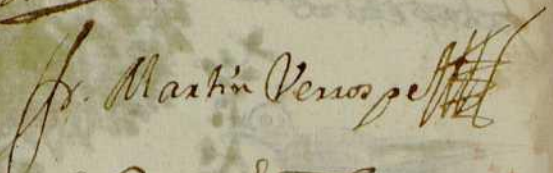 fr. Martin Verrospe